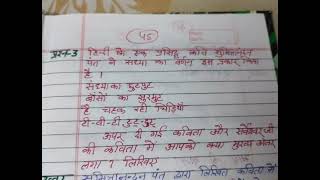 45
प्रश्न-3 हिन्दी के एक प्रसिद्ध कवि सुमित्रानंदन
पंत ने संध्या का वर्णन इस प्रकार किया
है।
संध्या का झुटपुट
बाँसों का झुरमुट
है चहक रही चिड़ियाँ
टी-वी-टी टुट्-टुट्
ऊपर दी गई कविता और सर्वेश्वरजी
की कविता में आपको क्या मुख्य अंतर
लगा? लिखिए
सुमित्रानन्दन पंत द्वारा लिखित कविता में